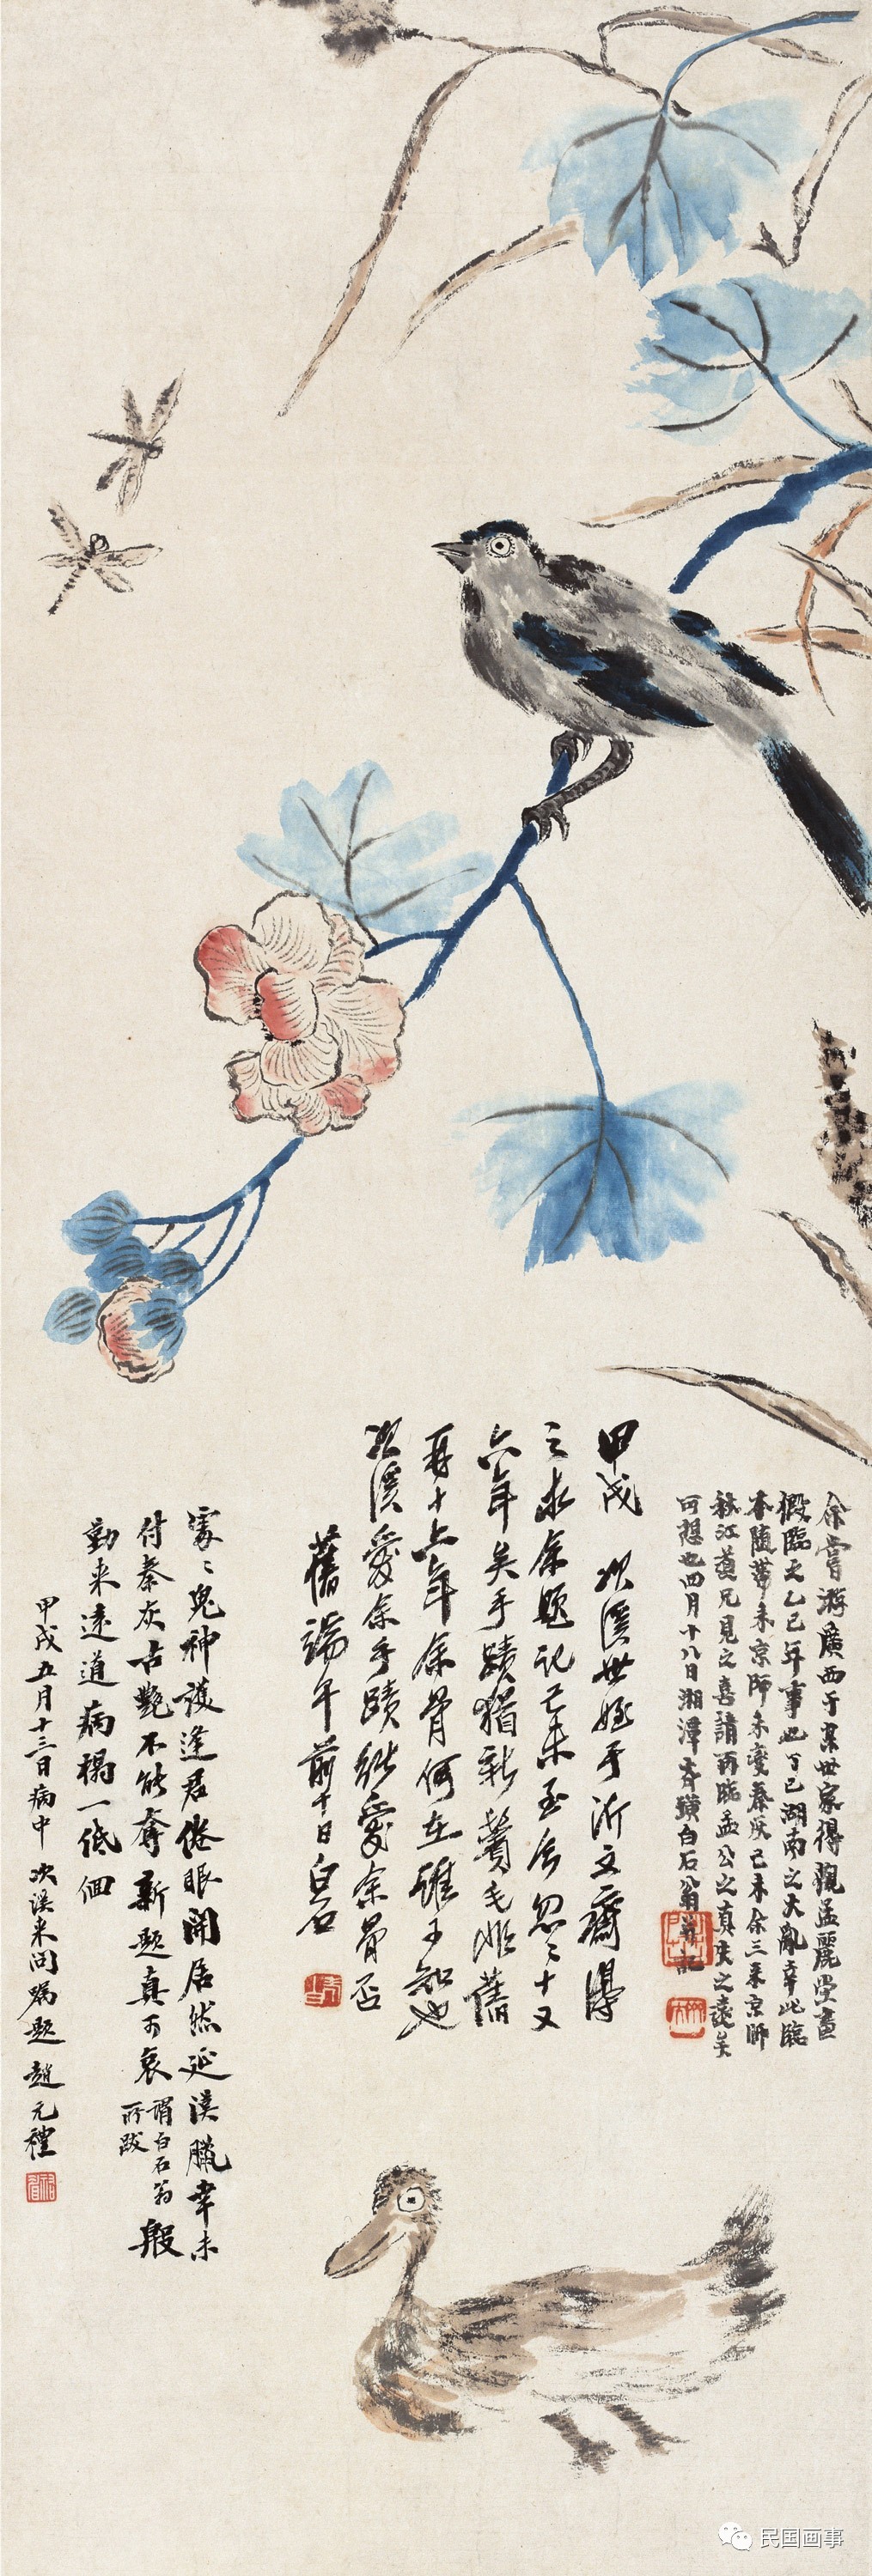 余嘗游廣西于某世家得觀孟麗堂畫
假臨之乙巳年事也丁巳湖南之大亂幸此臨
本隨帶來京師未變秦灰己未余三來京師
秋江道兄見之喜請再臨孟公之真失之遠矣
可想也四月十八日湘潭齊璜白石翁并記
甲戌次溪世姪于沂文齋得
之求余題記己未至今忽忽十又
六年矣手蹟猶新鬢毛非舊
再十六年余骨何在誰可知也
次溪愛余手蹟能愛余骨否
舊端午前十日白石
處處鬼神護逢君倦眼開居然延漢臘幸未
付秦灰古艷不能奪新題真可哀謂白石翁所跋殷
勤來遠道病榻一低佪
甲戌五月十三日病中次溪來問屬題趙元禮
民国画事